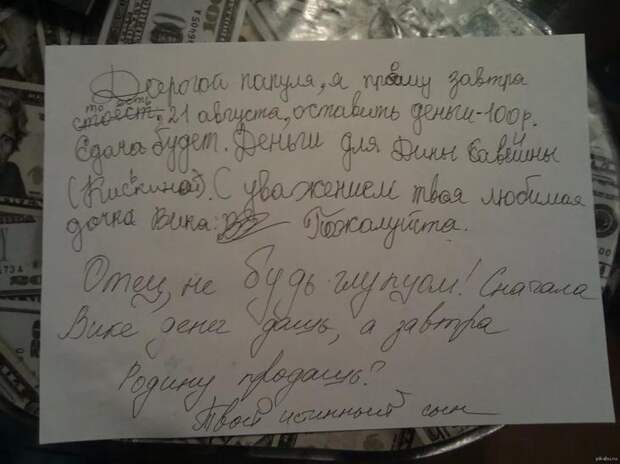 Дорогой папуля, я прошу завтра
то есть
стоест, 21 августа, оставить деньги-100р.
Сдача будет. Деньги для Дины Савейны
С уважением твоя любимая
дочка Вика:
Пожалуйста.
Отец, не будь глупцом! Сначала
Вике денег дашь, а завтра
Родину продашь?
Твой истинный сын
pikabu.ru